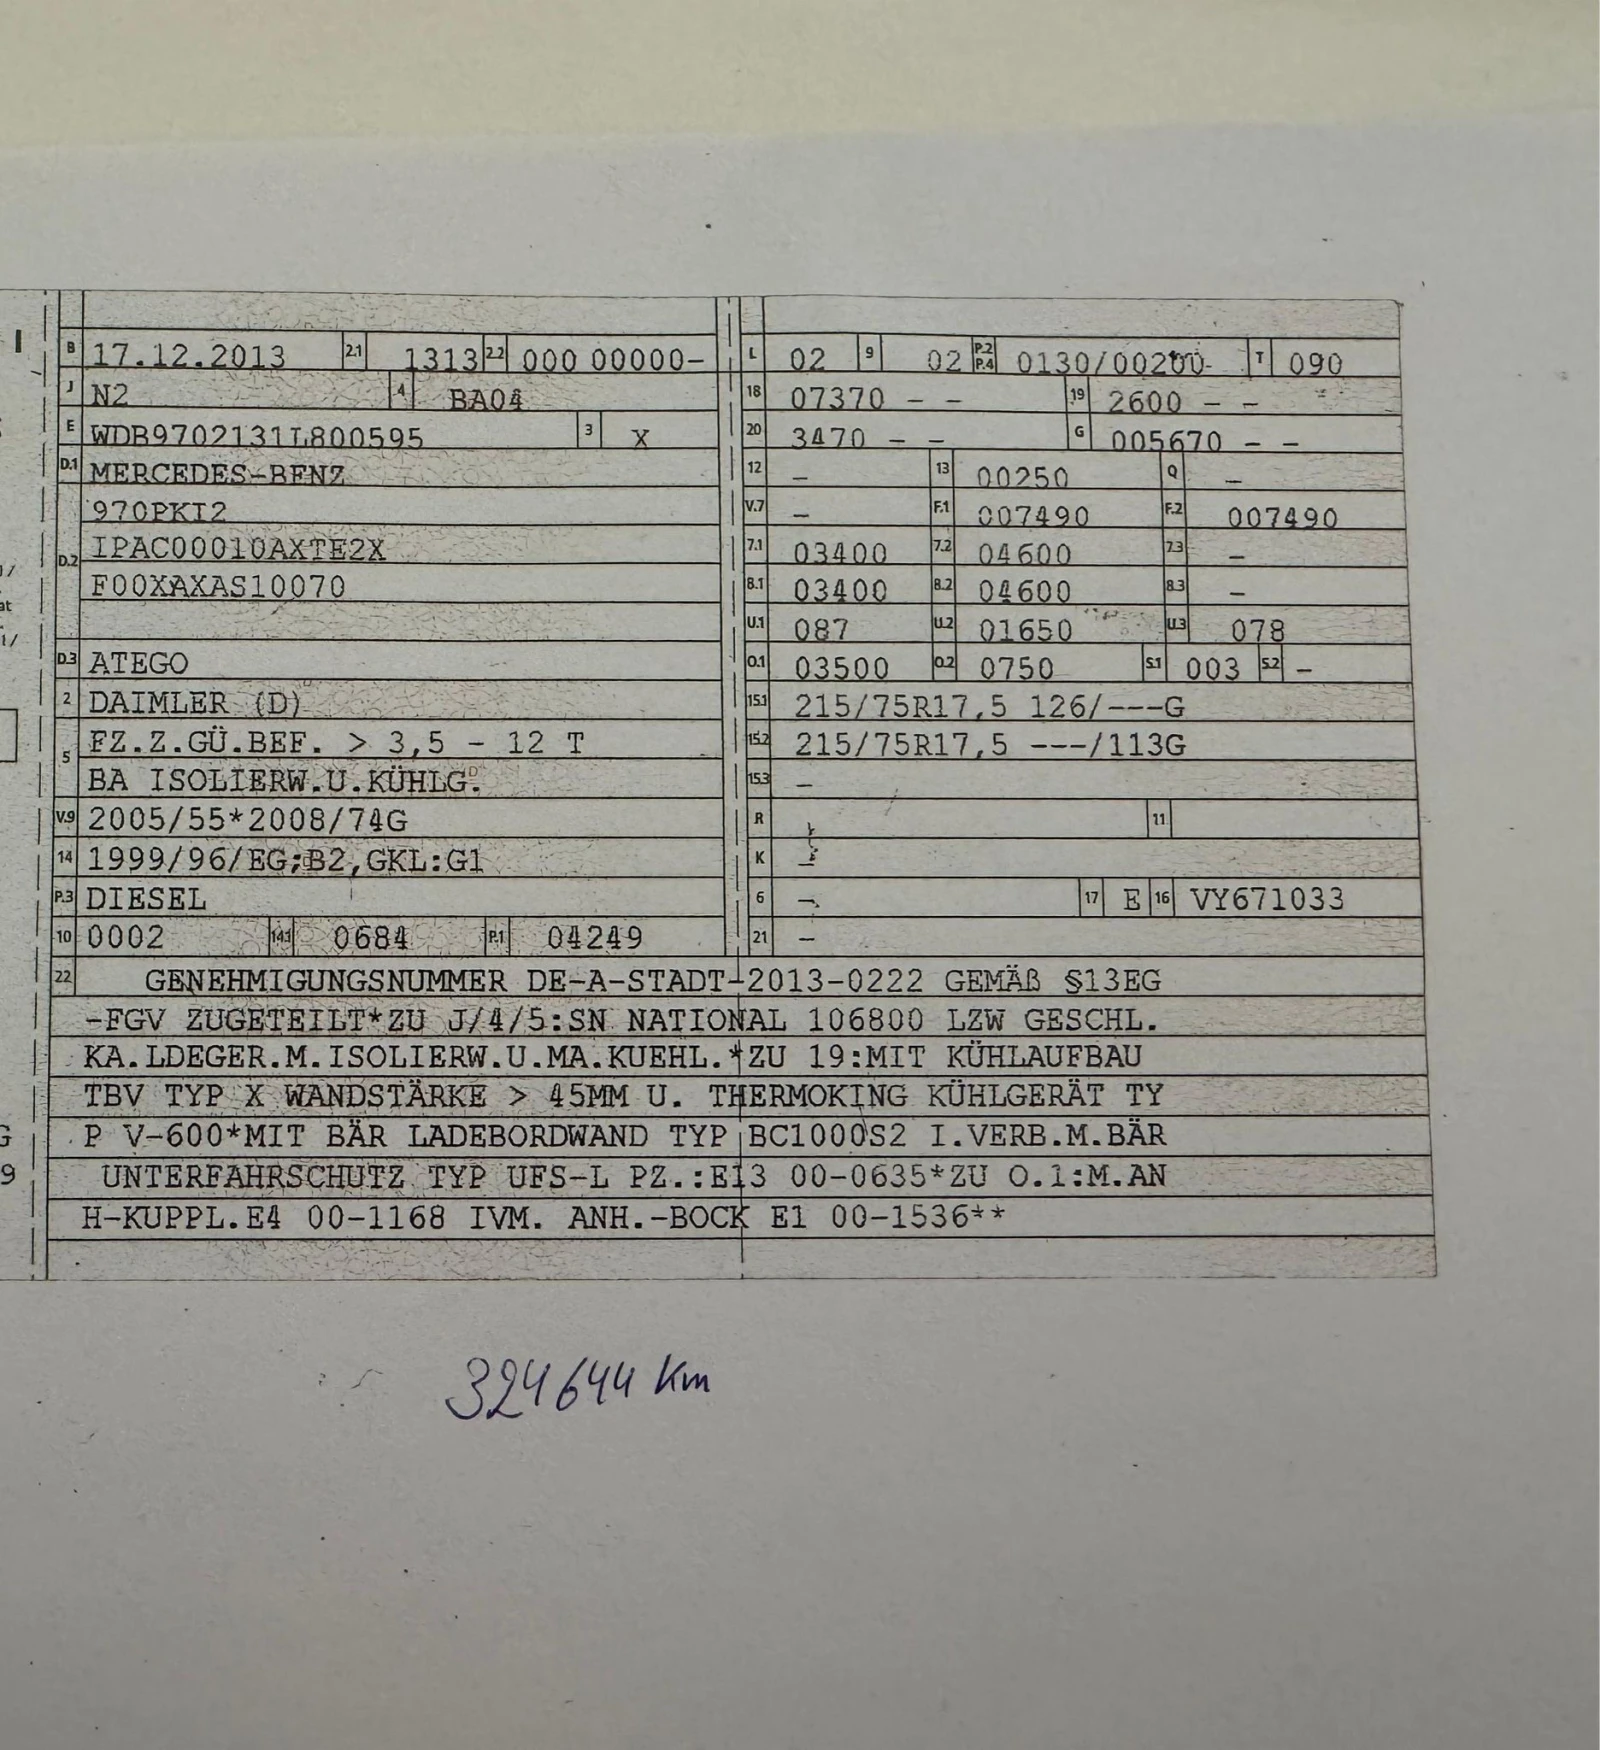 I
B 17.12.2013 2.1 1313 2.2 000 00000-
J N2 4 BA04
E WDB9702131L800595 3 X
D.1 MERCEDES-BENZ
970PKI2
D.2 IPAC00010AXTE2X
F00XAXAS10070
D.3 ATEGO
2 DAIMLER (D)
5 FZ.Z.GÜ.BEF. > 3,5 - 12 T
BA ISOLIERW.U.KÜHLG.
V.9 2005/55*2008/74G
14 1999/96/EG;B2,GKL:G1
P.3 DIESEL
10 0002 14.1 0684 P.1 04249
L 02 9 02 P.2 P.4 0130/00200- T 090
18 07370 - - 19 2600 - -
20 3470 - - G 005670 - -
12 - 13 00250 Q -
V.7 - F.1 007490 F.2 007490
7.1 03400 7.2 04600 7.3 -
8.1 03400 8.2 04600 8.3 -
U.1 087 U.2 01650 U.3 078
O.1 03500 O.2 0750 S.1 003 S.2 -
15.1 215/75R17,5 126/---G
15.2 215/75R17,5 ---/113G
15.3 -
R - 11
K -
6 - 17 E 16 VY671033
21 -
22 GENEHMIGUNGSNUMMER DE-A-STADT-2013-0222 GEMÄß §13EG
-FGV ZUGETEILT*ZU J/4/5:SN NATIONAL 106800 LZW GESCHL.
KA.LDEGER.M.ISOLIERW.U.MA.KUEHL.*ZU 19:MIT KÜHLAUFBAU
TBV TYP X WANDSTÄRKE > 45MM U. THERMOKING KÜHLGERÄT TY
P V-600*MIT BÄR LADEBORDWAND TYP BC1000S2 I.VERB.M.BÄR
UNTERFAHRSCHUTZ TYP UFS-L PZ.:E13 00-0635*ZU O.1:M.AN
H-KUPPL.E4 00-1168 IVM. ANH.-BOCK E1 00-1536**
324644 Km